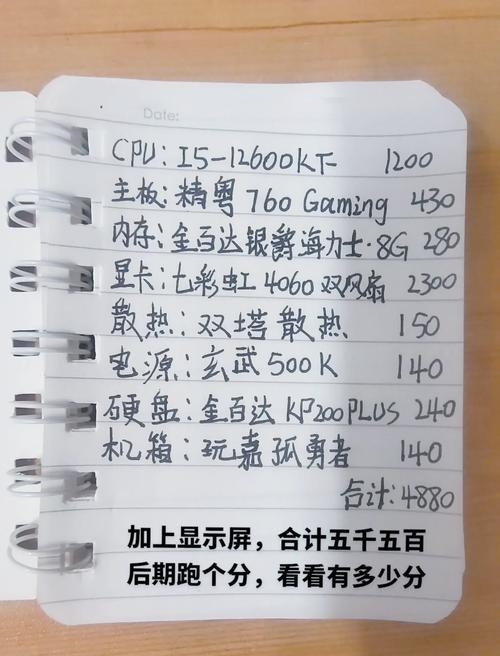 Date:
CPU: I5-12600KF 1200
主板: 精粤 760 Gaming 430
内存: 金百达银爵海力士·8G 280
显卡: 七彩虹 4060 双风扇 2300
散热: 双塔散热 150
电源: 玄武500K 140
硬盘: 金百达 KP200PLUS 240
机箱: 玩嘉 孤勇者 140
合计:4880
加上显示屏，合计五千五百
后期跑个分，看看有多少分